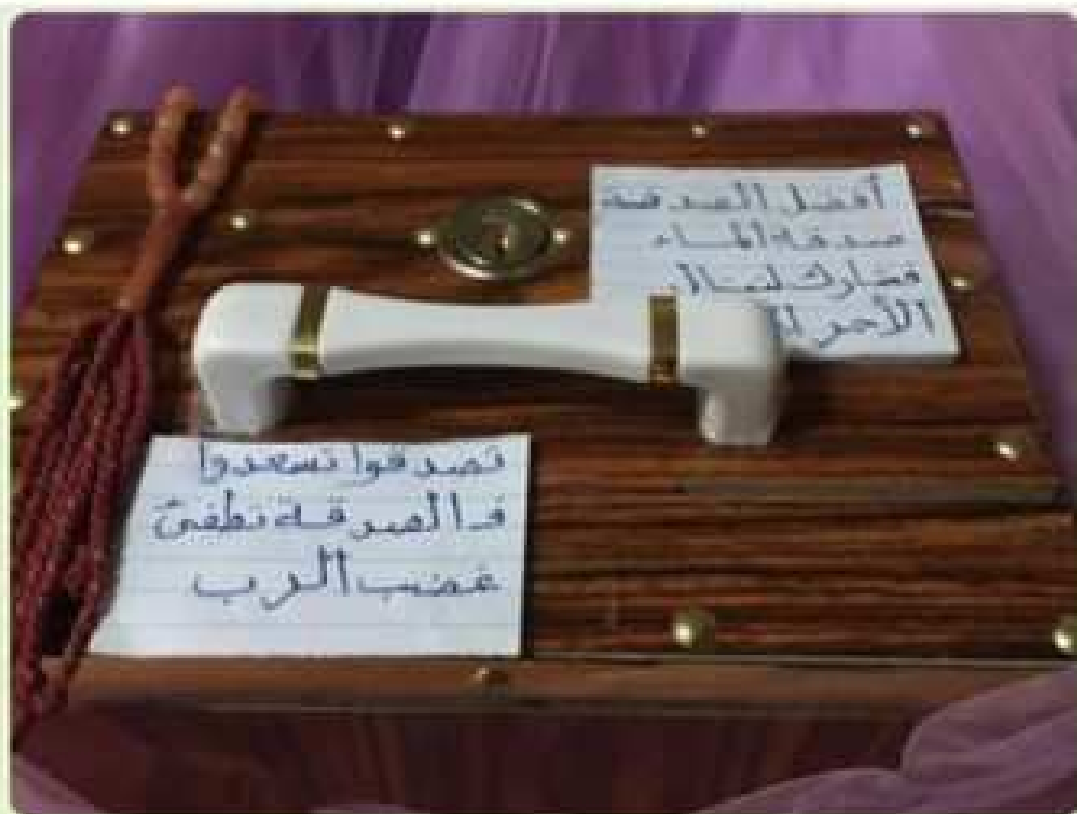 أفضل الصدقة
صدقة الماء
فشارك لتنال
الأجر
تصدقوا تسعدوا
فالصدقة تطفئ
غضب الرب